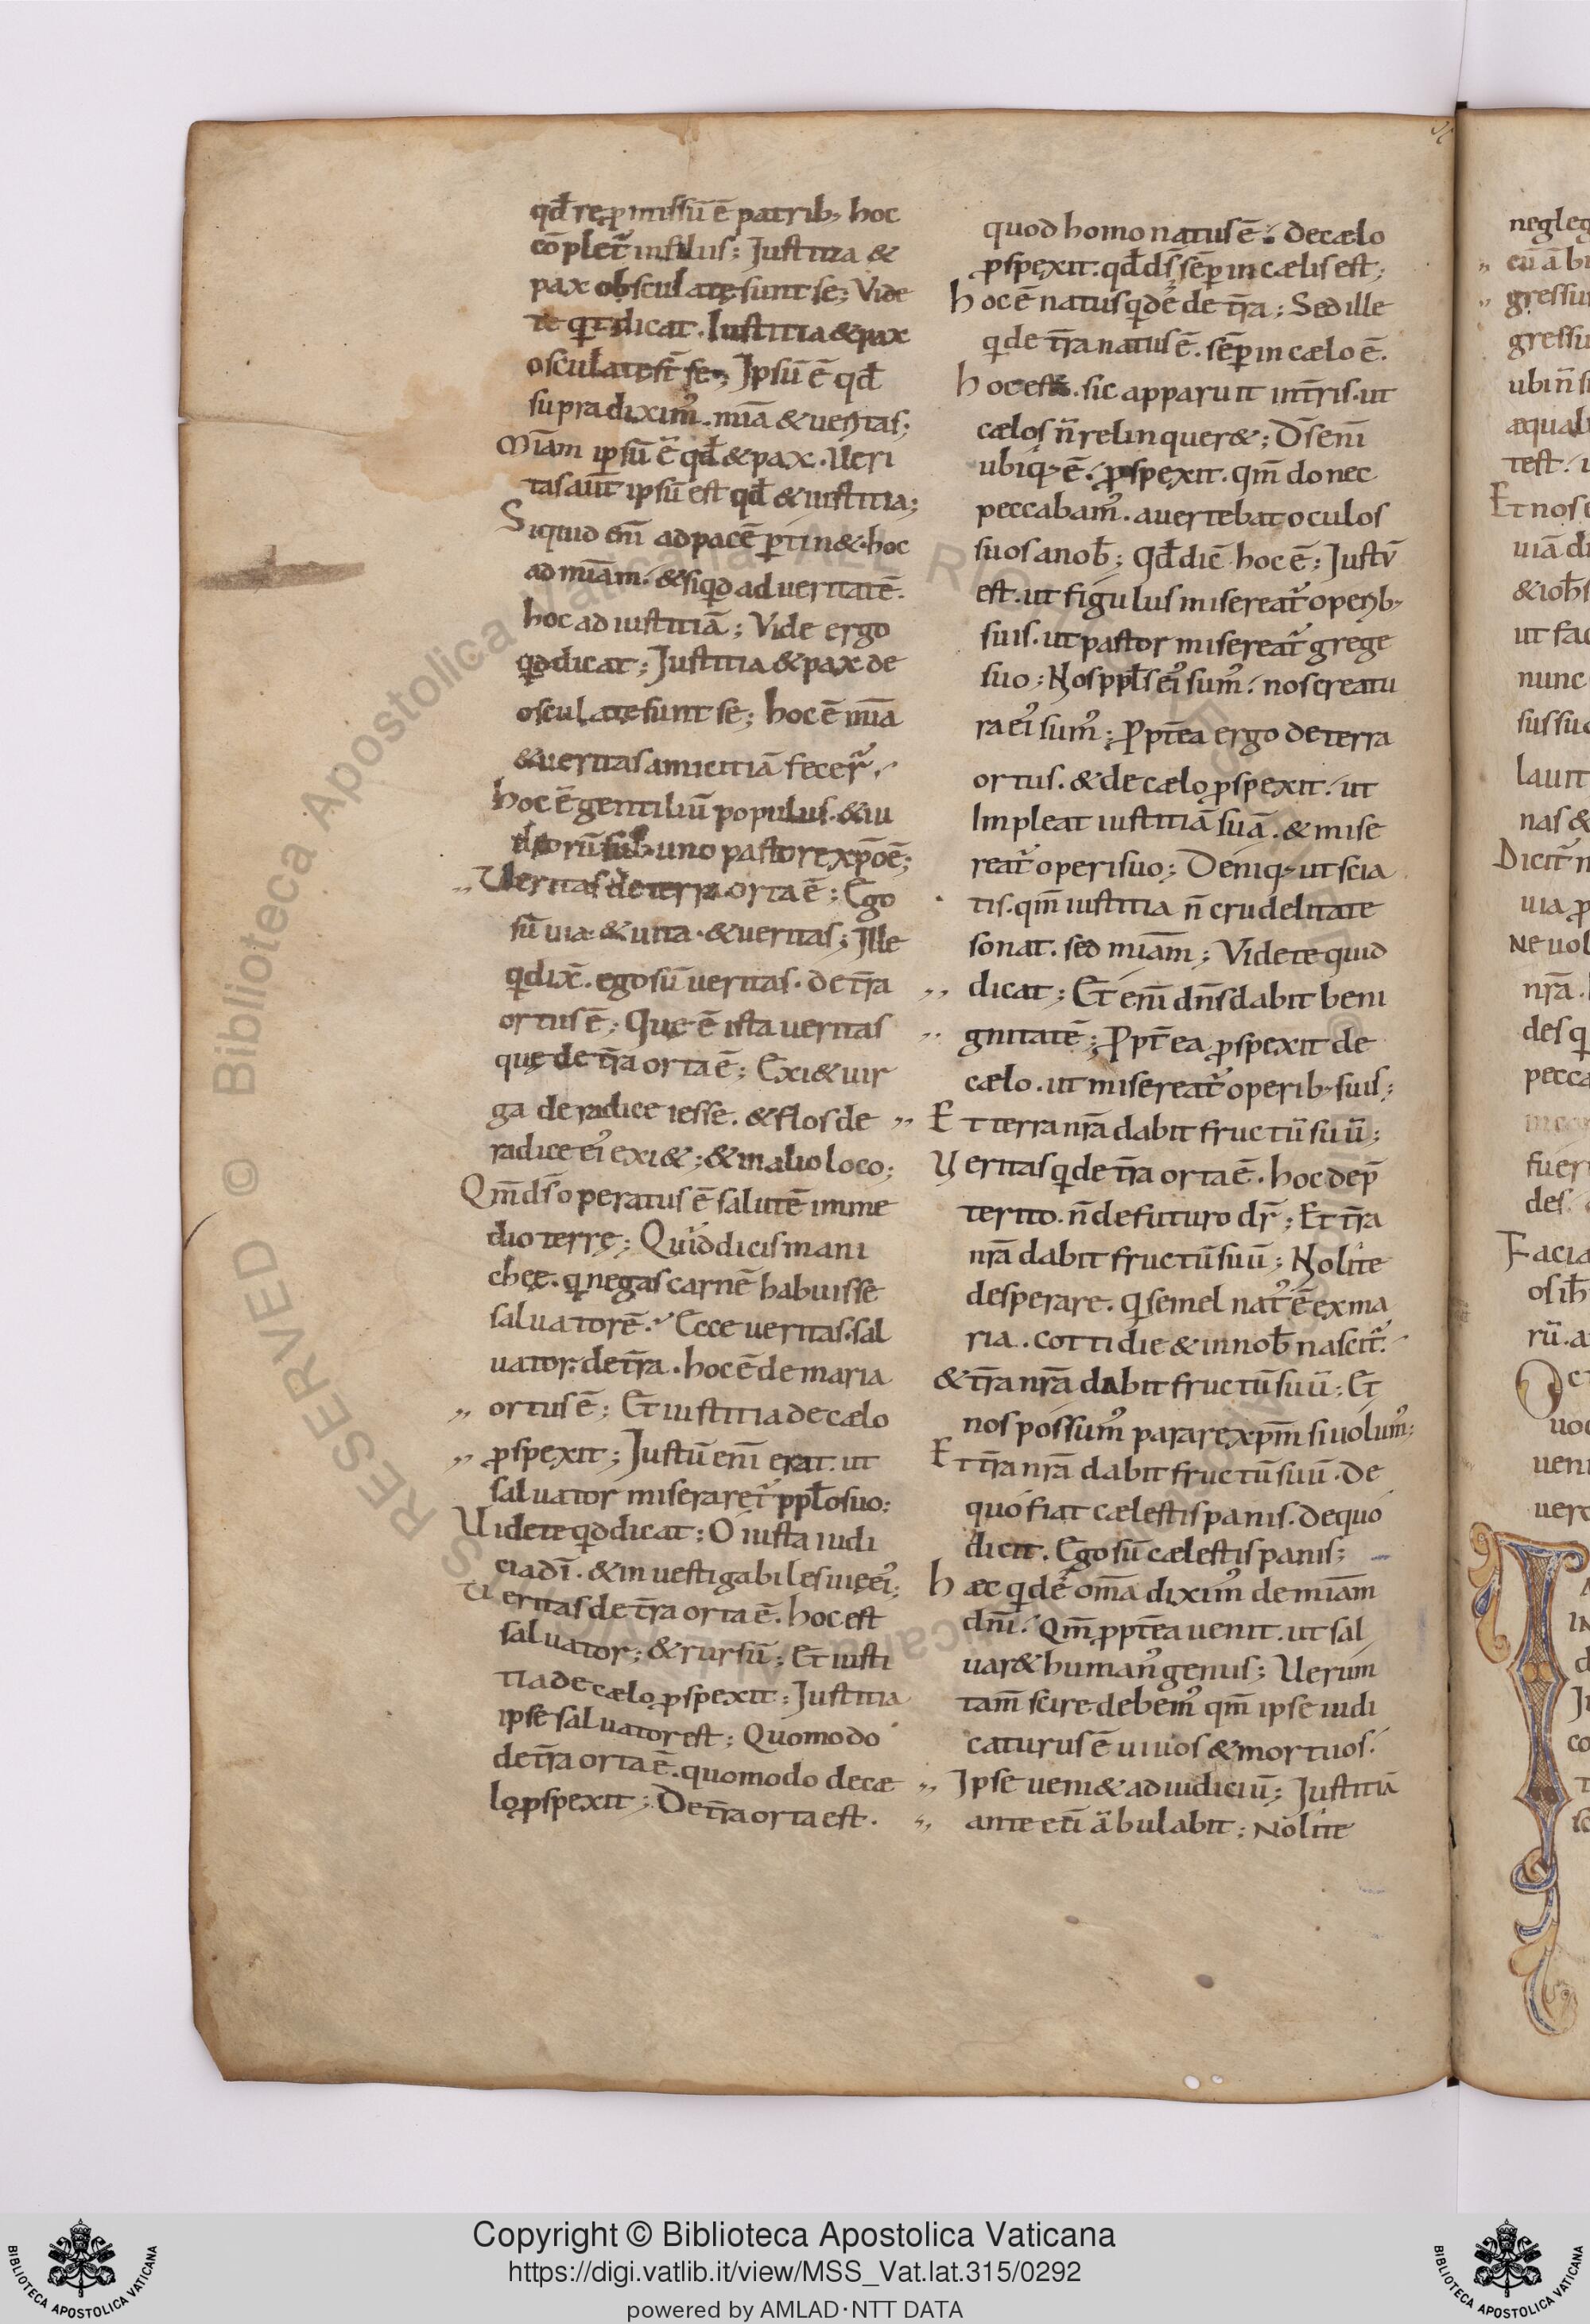 qđ repmissū ē patrib; hoc
cōplet᷑ insilus; Justitia &
pax obsculatę sunt se; Vide
te qid dicat. Iustitia & pax
osculatę st̄ se; Ipsū ē qđ
supra diximꝰ. mīa & ueritas;
Mīam ipsū ē qđ & pax. Ueri
tas aūt ipsū est qđ & iustitia;
Siquid eni ad pacē ꝑtin&. hoc
ad mīam. & siqd ad ueritatē.
hoc ad iustitiā; Vide ergo
qd dicat; Justitia & pax de
osculatę sunt se; hoc ē mīa
& ueritas amicitiā fecer᷑.
hoc ē gentiliū populus. & iu
deorū sub uno pastore xp̄o ē;
„ Ueritas de terra orta ē; Ego
sū uia & uita. & ueritas; Ille
qi dix̄. ego sū ueritas. de tr̄a
ortus ē; Quę ē ista ueritas
quę de tr̄a orta ē; Exi& uir
ga de radice iesse. & flos de
radice eiꝰ exi&; & in alio loco;
Qm̄ ds̄ operatus ē salutē in me
dio terrę; Quid dicis mani
cheę. qi negas carnē habuisse
saluatorē. Ecce ueritas. sal
uator. de tr̄a. hoc ē de maria
„ ortus ē; Et iustitia de cælo
„ ꝓspexit; Justū eni erat. ut
saluator miseraret᷑ ppło suo;
Uidete qd dicat; O iusta iudi
cia dī. & inuestigabiles uię eiꝰ;
Ueritas de tr̄a orta ē. hoc est
saluator; & rursū; Et iusti
tia de cælo ꝓspexit; Justitia
ipse saluator est; Quomodo
de tr̄a orta ē. quomodo de cæ
lo ꝓspexit; De tr̄a orta est.
quod homo natus ē. de cælo
ꝓspexit. qđ ds̄ sēp in cælis est;
hoc ē natus qidē de tr̄a; Sed ille
qi de tr̄a natus ē. sēp in cælo ē.
hoc est. sic apparuit in tr̄is. ut
cælos n̄ relinquer&; Ds̄ eni
ubiq; ē. ꝓspexit. qm̄ donec
peccabamꝰ. auertebat oculos
suos a nob̄; Qđ dic̄ hoc ē; Justū
est. ut figulus misereat᷑ operib;
suis. ut pastor misereat᷑ grege
suo; Nos ppłs eiꝰ sumꝰ. nos creatu
ra eiꝰ sumꝰ; Ppt̄ea ergo de terra
ortus. & de cælo ꝓspexit. ut
Impleat iustitiā suā. & mise
reat᷑ operi suo; Deniq; ut scia
tis. qm̄ iustitia n̄ crudelitate
sonat. sed mīam; Videte quid
„ dicat; Et eni dn̄s dabit beni
„ gnitatē; Ppt̄ea ꝓspexit de
cælo. ut misereat᷑ operib; suis;
„ Et terra nr̄a dabit fructū suū;
Ueritas qi de tr̄a orta ē. hoc de p̄
terito. n̄ de futuro dr̄; Et tr̄a
nr̄a dabit fructū suū; Nolite
desperare. qi semel natꝰ ē ex ma
ria. cottidie & in nob̄ nascit᷑.
& tr̄a nr̄a dabit fructū suū; Et
nos possumꝰ parare xpm̄ si uolumꝰ;
Et tr̄a nr̄a dabit fructū suū. De
quo fiat cælestis panis. de quo
dicit. Ego sū cælestis panis;
hæc qidē om̄a diximꝰ de mīam
dn̄i. Qm̄ ꝓpt̄ea uenit. ut sal
uar& humanꝰ genus; Uerum
tam̄ scire debemꝰ qm̄ ipse iudi
caturus ē uiuos & mortuos.
„ Ipse ueni& ad iudiciū; Justitiā
„ ante eū ābulabit; Nolite
negleg
„ eū āb
„ gressu
gressu
æqual
Et nos
uiā di
ut fac
nunc
sus suo
lauit
nas &
Dicit᷑
uia
Ne uol
nr̄a.
des q
pecca
fuer
des.
Facia
uoc
ueni
uere
Copyright © Biblioteca Apostolica Vaticana
https://digi.vatlib.it/view/MSS_Vat.lat.315/0292
powered by AMLAD·NTT DATA
BIBLIOTECA APOSTOLICA VATICANA
BIBLIOTECA APOSTOLICA VATICANA